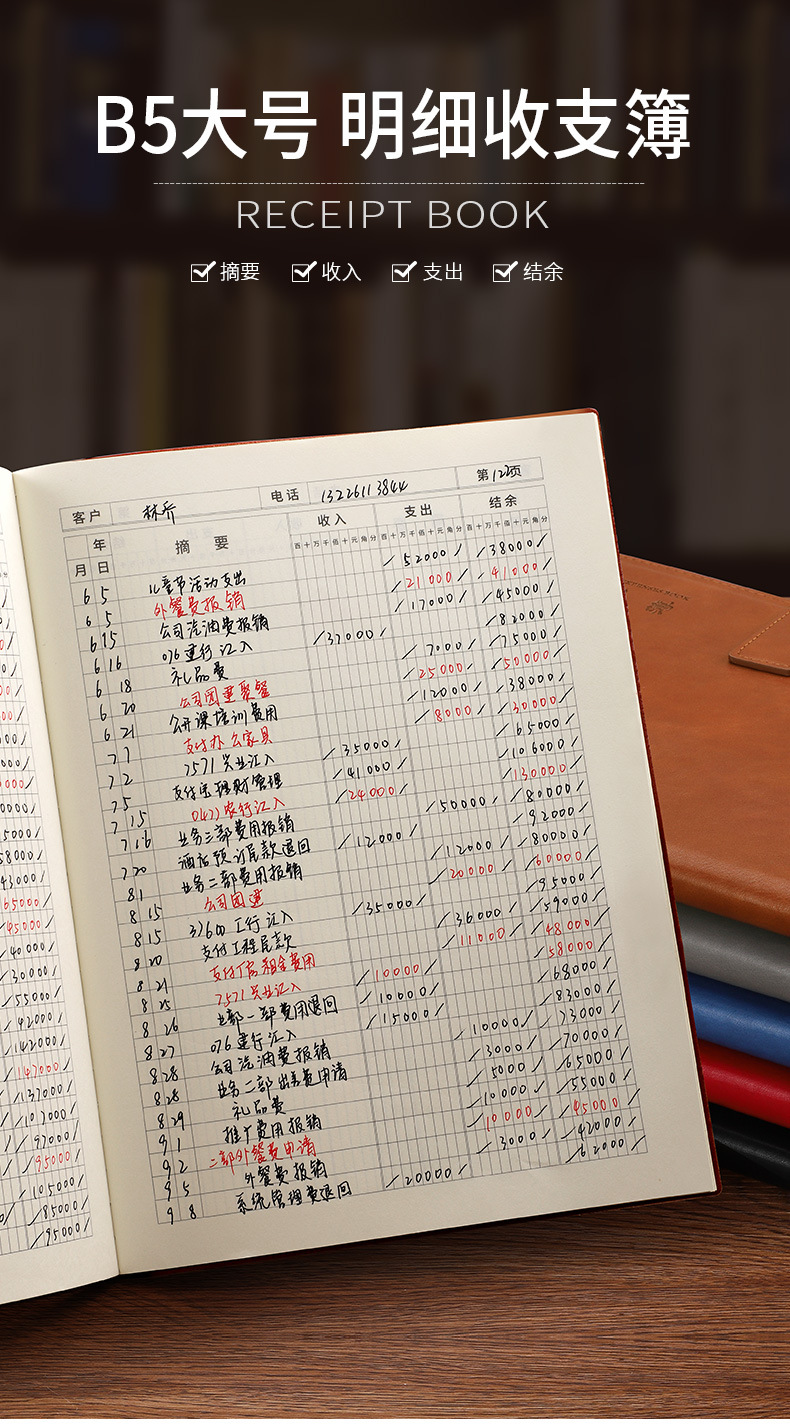 B5大号 明细收支簿
RECEIPT BOOK
摘要 收入 支出 结余
客户 林乔 电话 13226113844 第122页
年 摘要 收入 支出 结余
月 日 百十万千佰十元角分 百十万千佰十元角分 百十万千佰十元角分
6 5 儿童节活动支出 52000 38000
6 5 外餐费报销 21000 41000
6 15 公司汽油费报销 17000 45000
6 16 076建行汇入 37000 82000
6 18 礼品费 7000 75000
6 20 公司团建聚餐 25000 50000
6 21 公开课培训费用 12000 38000
7 1 支付办公家具 8000 30000
7 2 7571兴业汇入 35000 65000
7 5 支付宝理财管理 41000 106000
7 15 0477农行汇入 24000 130000
7 16 业务三部费用报销 50000 80000
7 20 酒店预订尾款退回 12000 92000
8 1 业务二部费用报销 12000 80000
8 15 公司团建 20000 60000
8 15 工行汇入 35000 95000
8 20 支付工程尾款 36000 59000
8 21 支付厂房租金费用 11000 48000
8 25 7571兴业汇入 10000 58000
8 26 业部一部费用退回 10000 68000
8 27 076建行汇入 15000 83000
8 28 公司汽油费报销 10000 73000
8 28 业务二部出差费申请 3000 70000
8 29 礼品费 5000 65000
9 1 推广费用报销 10000 55000
9 2 二部外餐费申请 10000 45000
9 5 外餐费报销 3000 42000
9 8 系统管理费退回 20000 62000